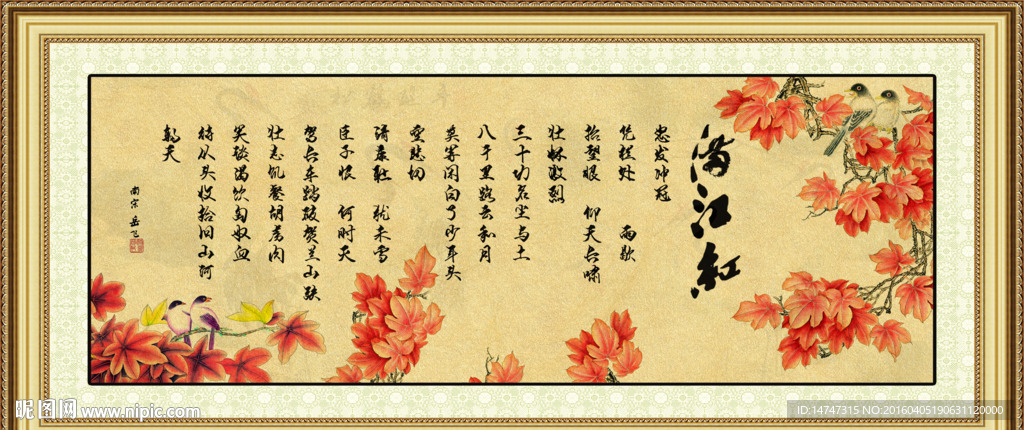 满江紅
怒发冲冠
凭栏处 雨歇
抬望眼 仰天长啸
壮怀激烈
三十功名尘与土
八千里路云和月
莫等闲白了少年头
空悲切
靖康耻 犹未雪
臣子恨 何时灭
驾长车踏破贺兰山缺
壮志饥餐胡虏肉
笑谈渴饮匈奴血
待从头收拾旧山河
朝天
南宋 岳飞
昵图网 www.nipic.com
ID:14747315 NO:20160405190631120000